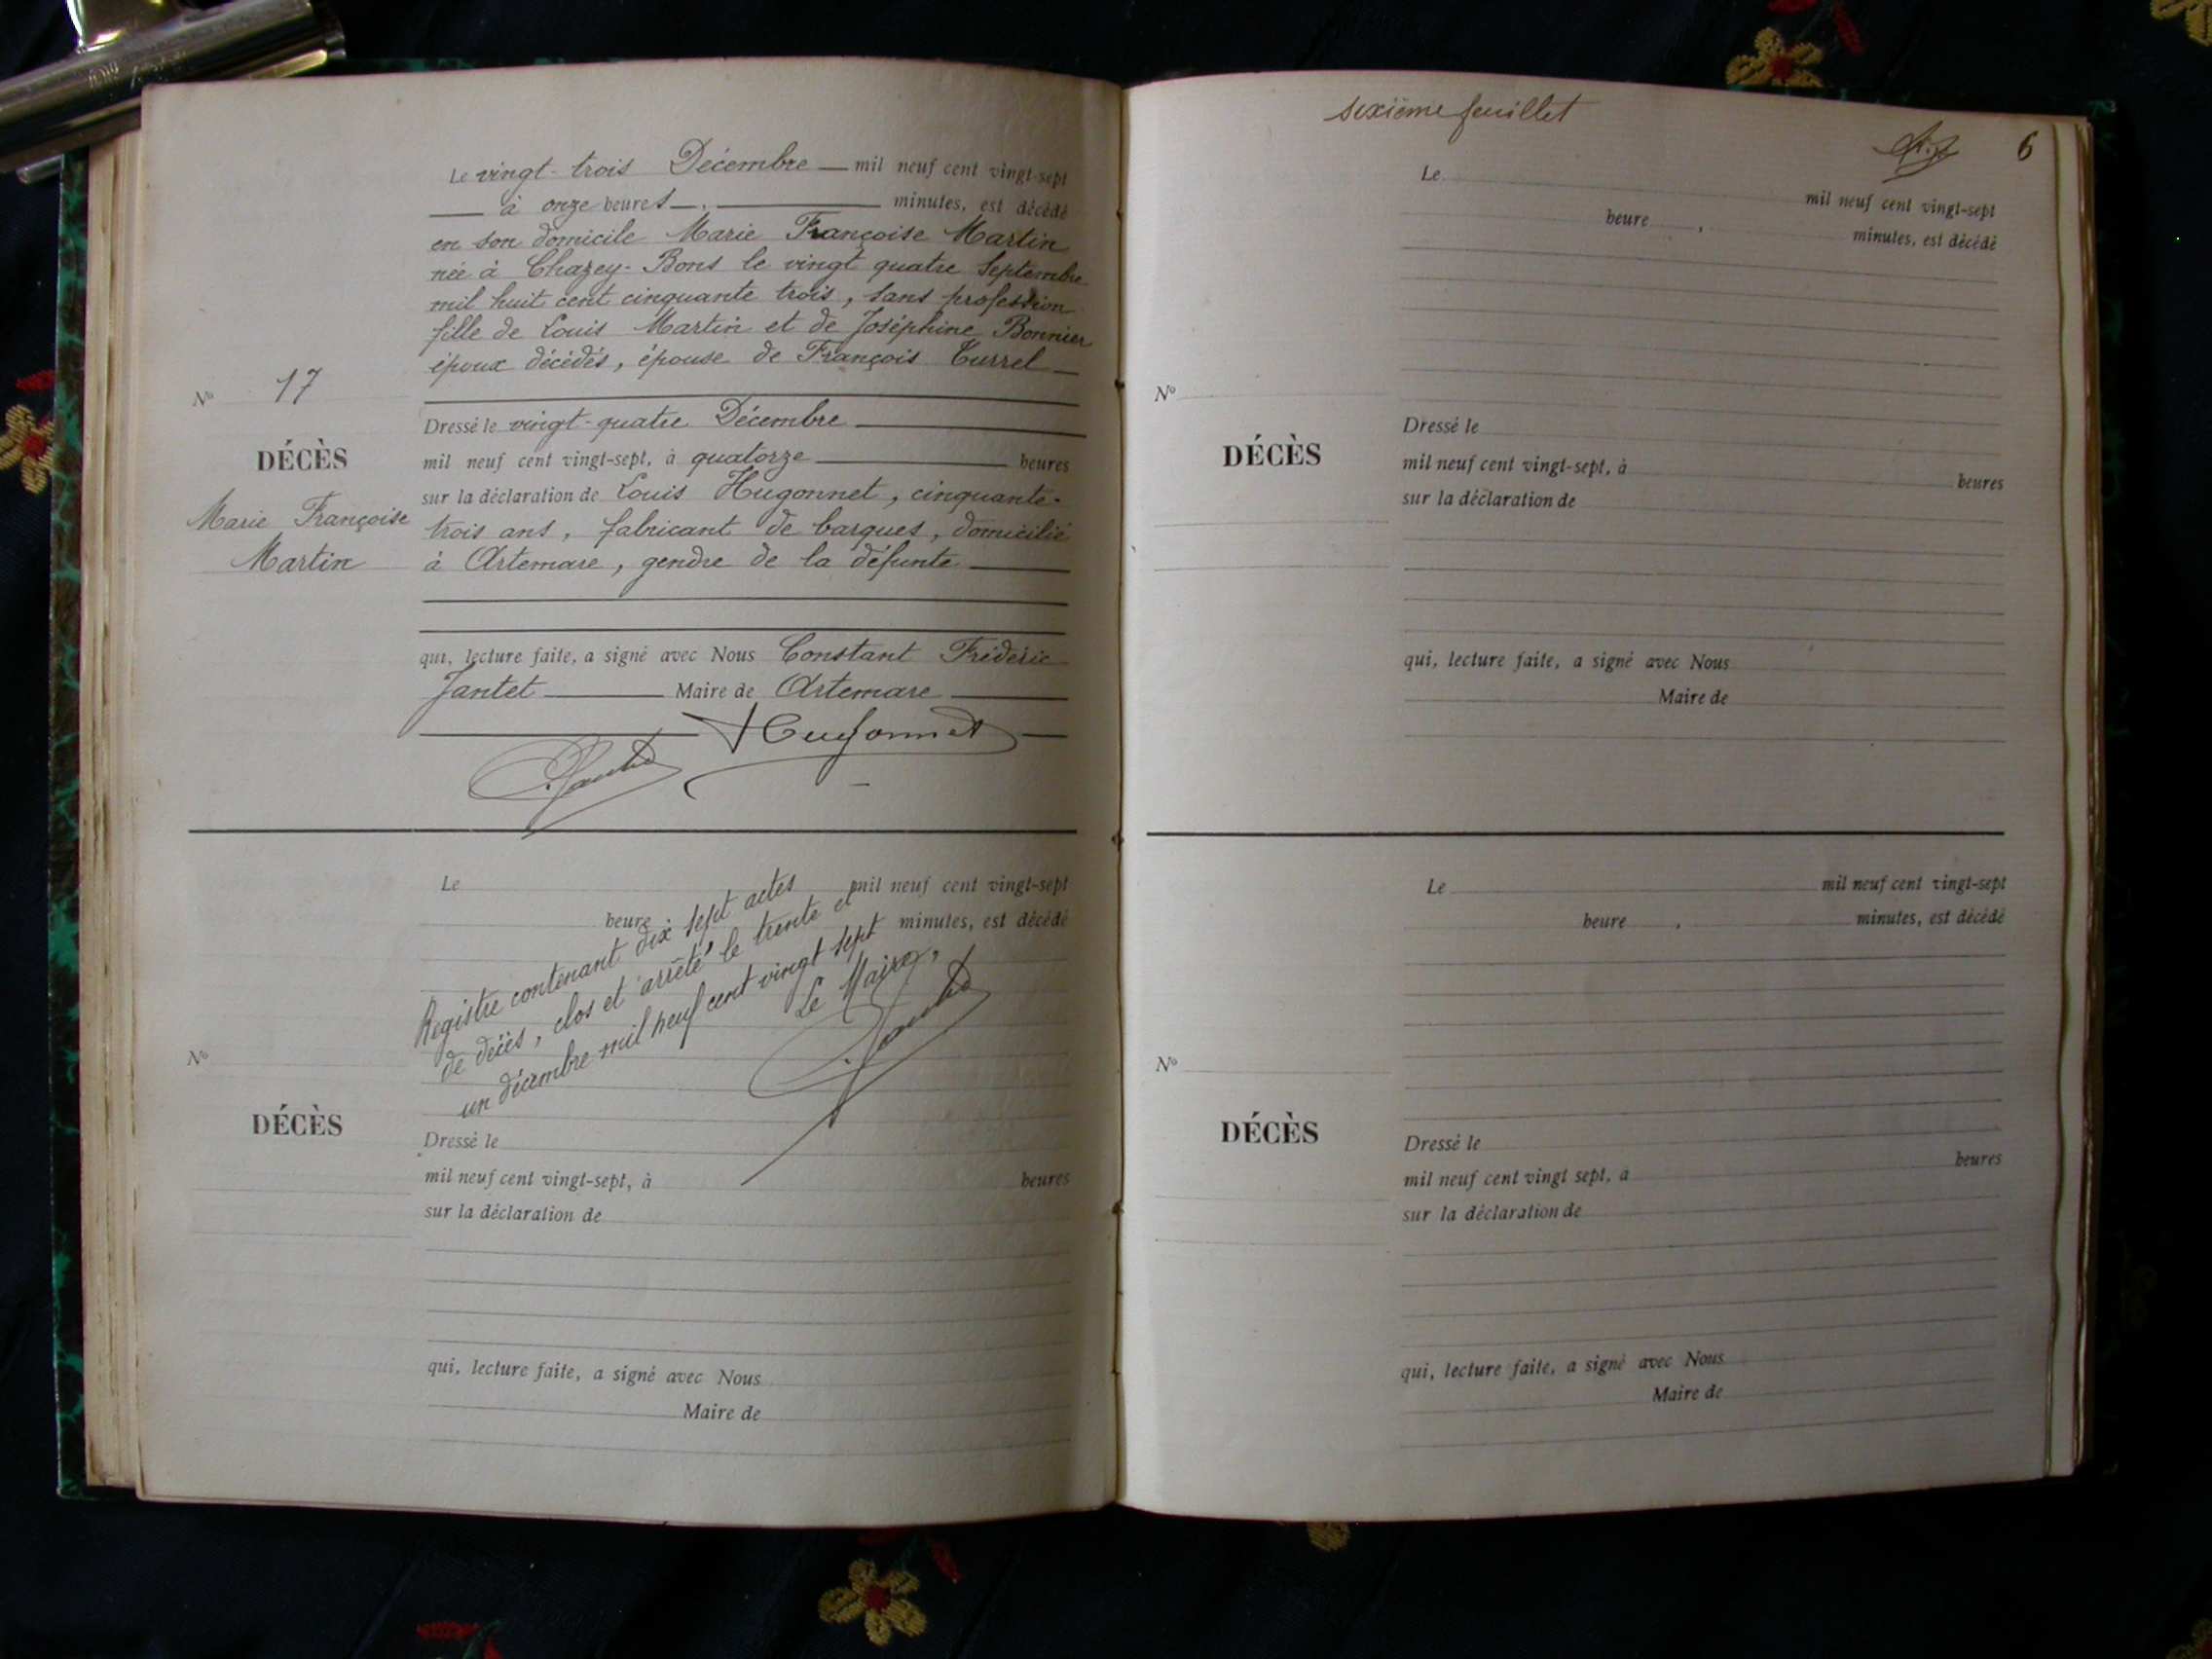 Le vingt-trois Décembre — mil neuf cent vingt-sept
— à onze heures —, — minutes, est décédé
en son domicile Marie Françoise Martin
née à Chazey-Bons le vingt quatre Septembre
mil huit cent cinquante trois, sans profession
fille de Louis Martin et de Joséphine Bonnier
époux décédés, épouse de François Turrel —
N° 17
DÉCÈS
Marie Françoise
Martin
Dressé le vingt-quatre Décembre —
mil neuf cent vingt-sept, à quatorze — heures
sur la déclaration de Louis Hugonnet, cinquante-
trois ans, fabricant de barques, domicilié
à Artemare, gendre de la défunte —
qui, lecture faite, a signé avec Nous Constant Frédéric
Jantet — Maire de Artemare —
Hugonnet
Jantet
Le mil neuf cent vingt-sept
heure minutes, est décédé
Registre contenant dix sept actes
de décès, clos et arrêté le trente et
un décembre mil neuf cent vingt sept
Le Maire,
Jantet
N°
DÉCÈS
Dressé le
mil neuf cent vingt-sept, à heures
sur la déclaration de
qui, lecture faite, a signé avec Nous
Maire de
sixième feuillet
6
Le mil neuf cent vingt-sept
heure , minutes, est décédé
N°
DÉCÈS
Dressé le
mil neuf cent vingt-sept, à heures
sur la déclaration de
qui, lecture faite, a signé avec Nous
Maire de
Le mil neuf cent vingt-sept
heure , minutes, est décédé
N°
DÉCÈS
Dressé le
mil neuf cent vingt sept, à heures
sur la déclaration de
qui, lecture faite, a signé avec Nous
Maire de